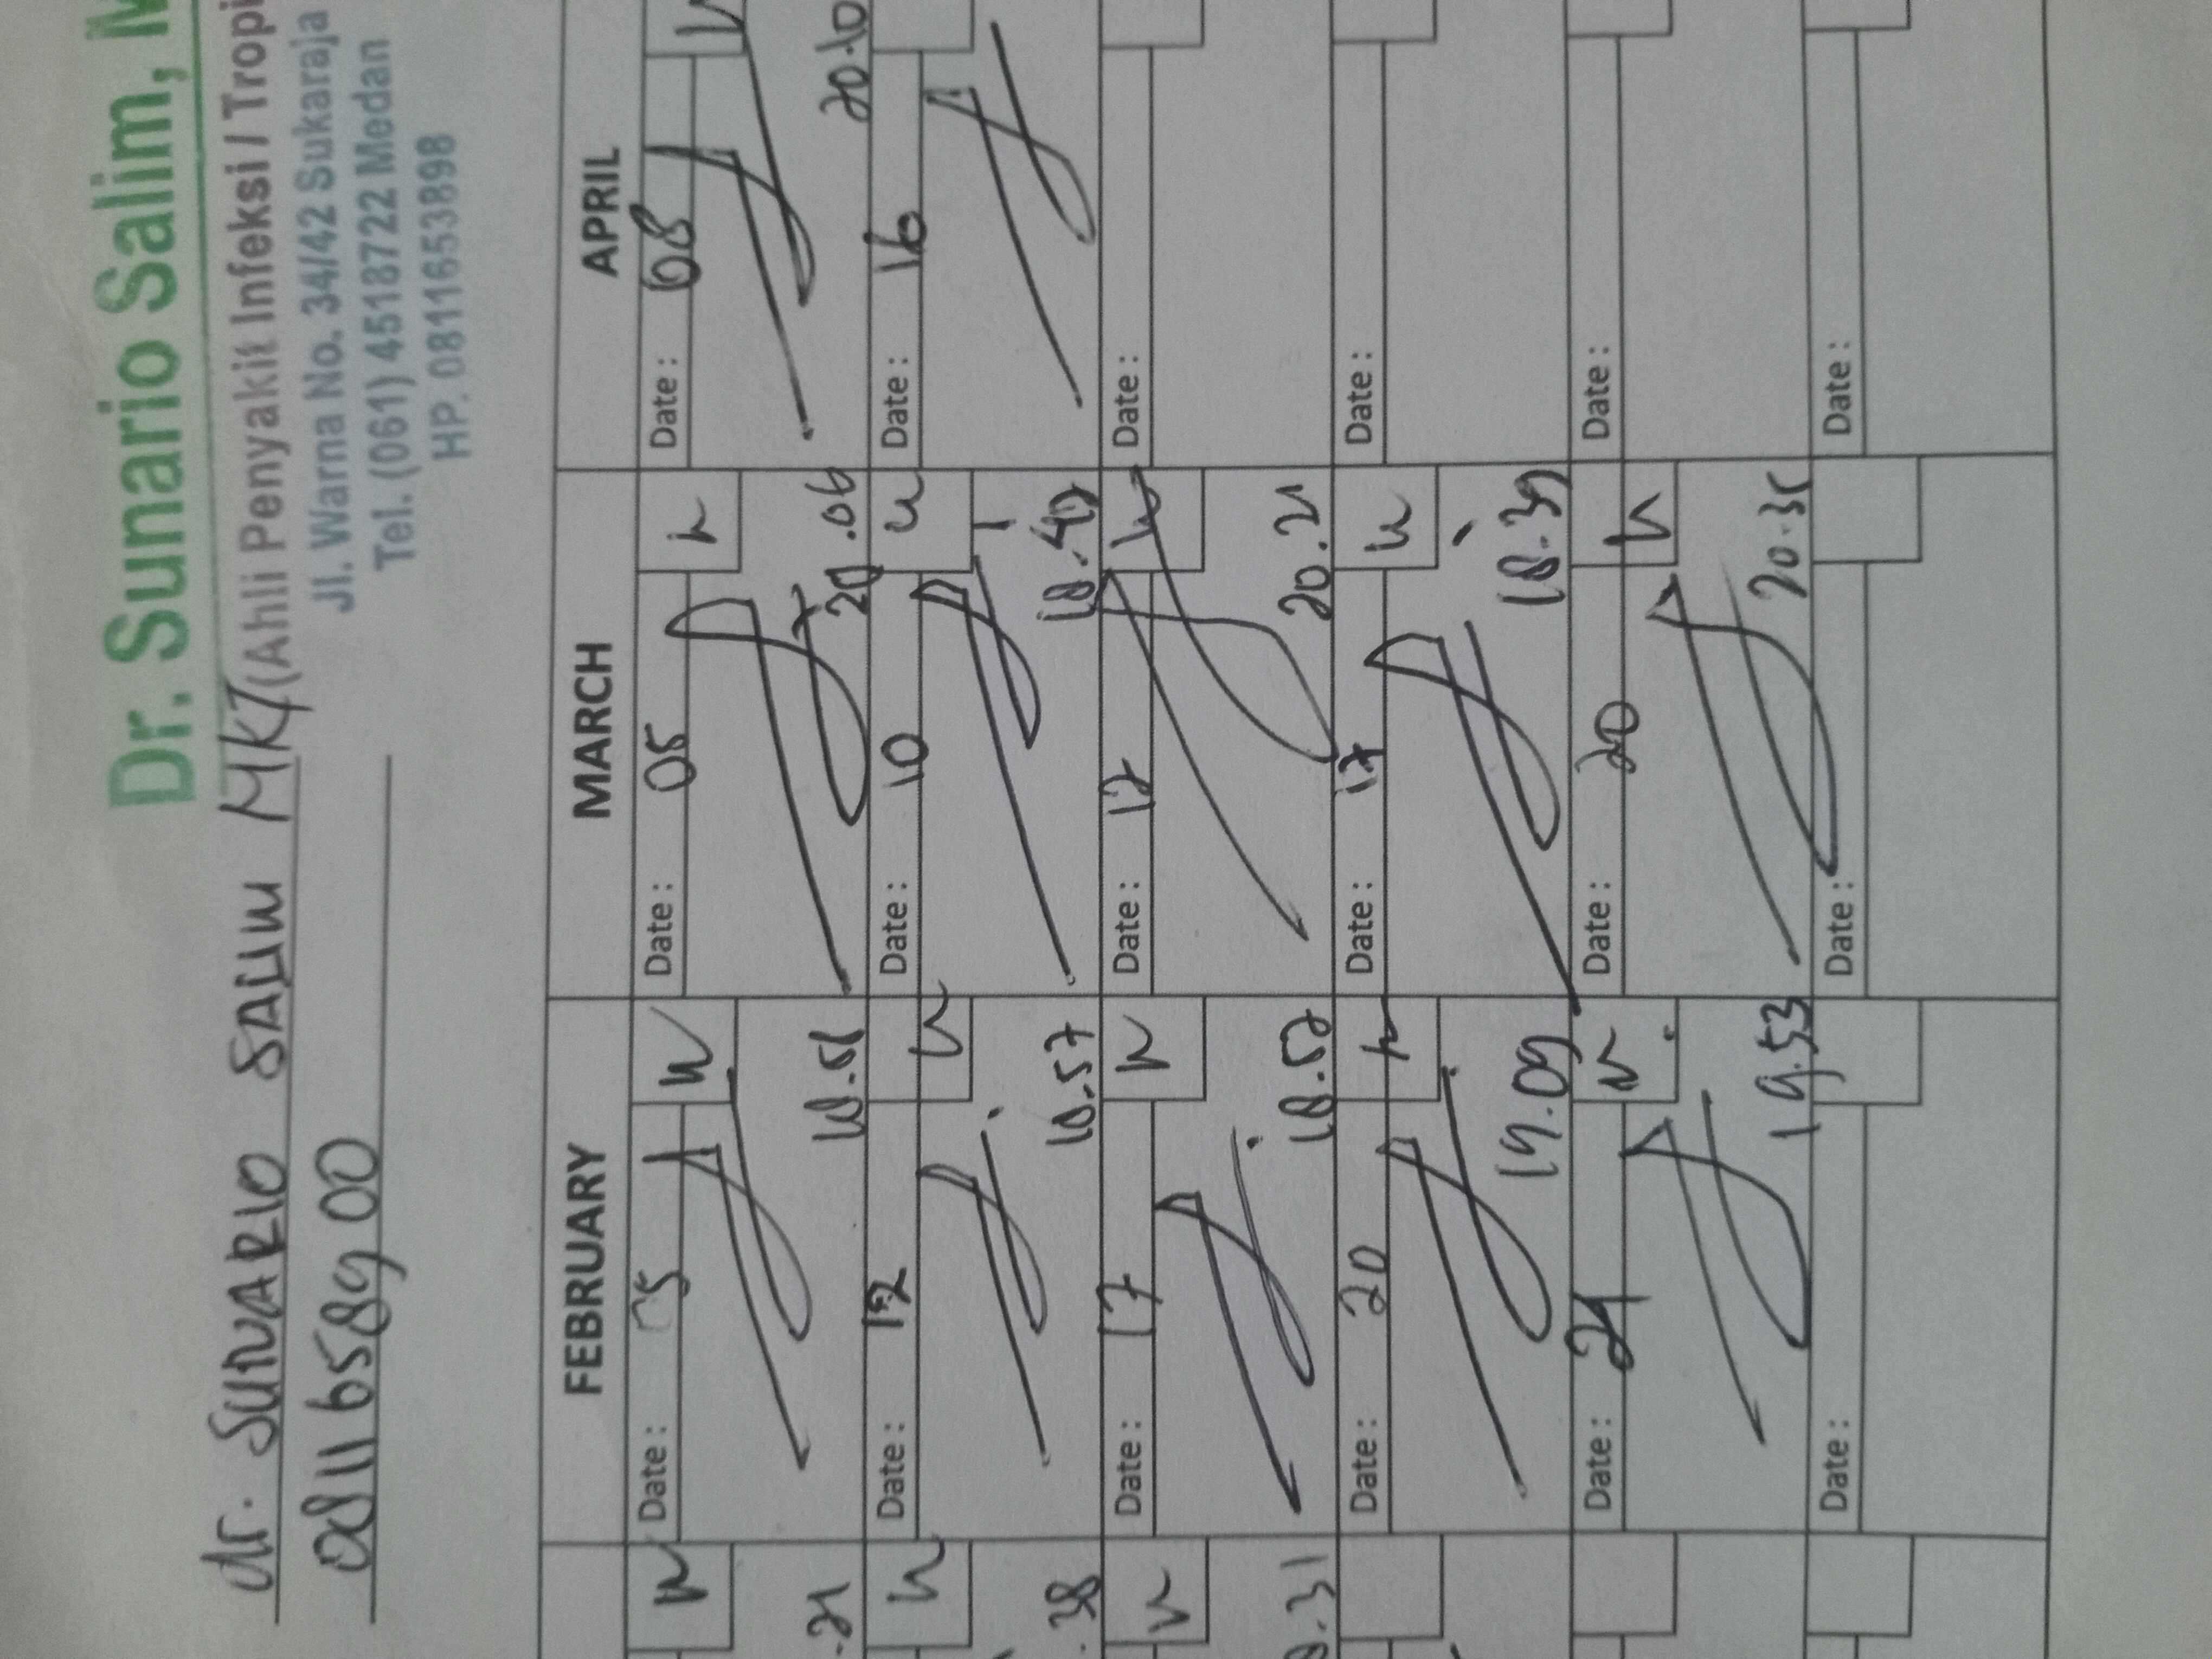 Dr. Sunario Salim, M
(Ahli Penyakit Infeksi / Tropi
Jl. Warna No. 34/42 Sukaraja
Tel. (061) 4518722 Medan
HP. 0811653898
dr. SUNARIO SALIM MKT
0811 658900
FEBRUARY MARCH APRIL
Date : 05 Date : 05 Date : 08
.21 18.51 20.06
Date : 12 Date : 10 Date : 16
.38 18.57 18.49 20.10
Date : 17 Date : 12 Date :
.31 18.52 20.21
Date : 20 Date : 17 Date :
19.09 18.39
Date : 24 Date : 20 Date :
19.53 20.35
Date : Date : Date :